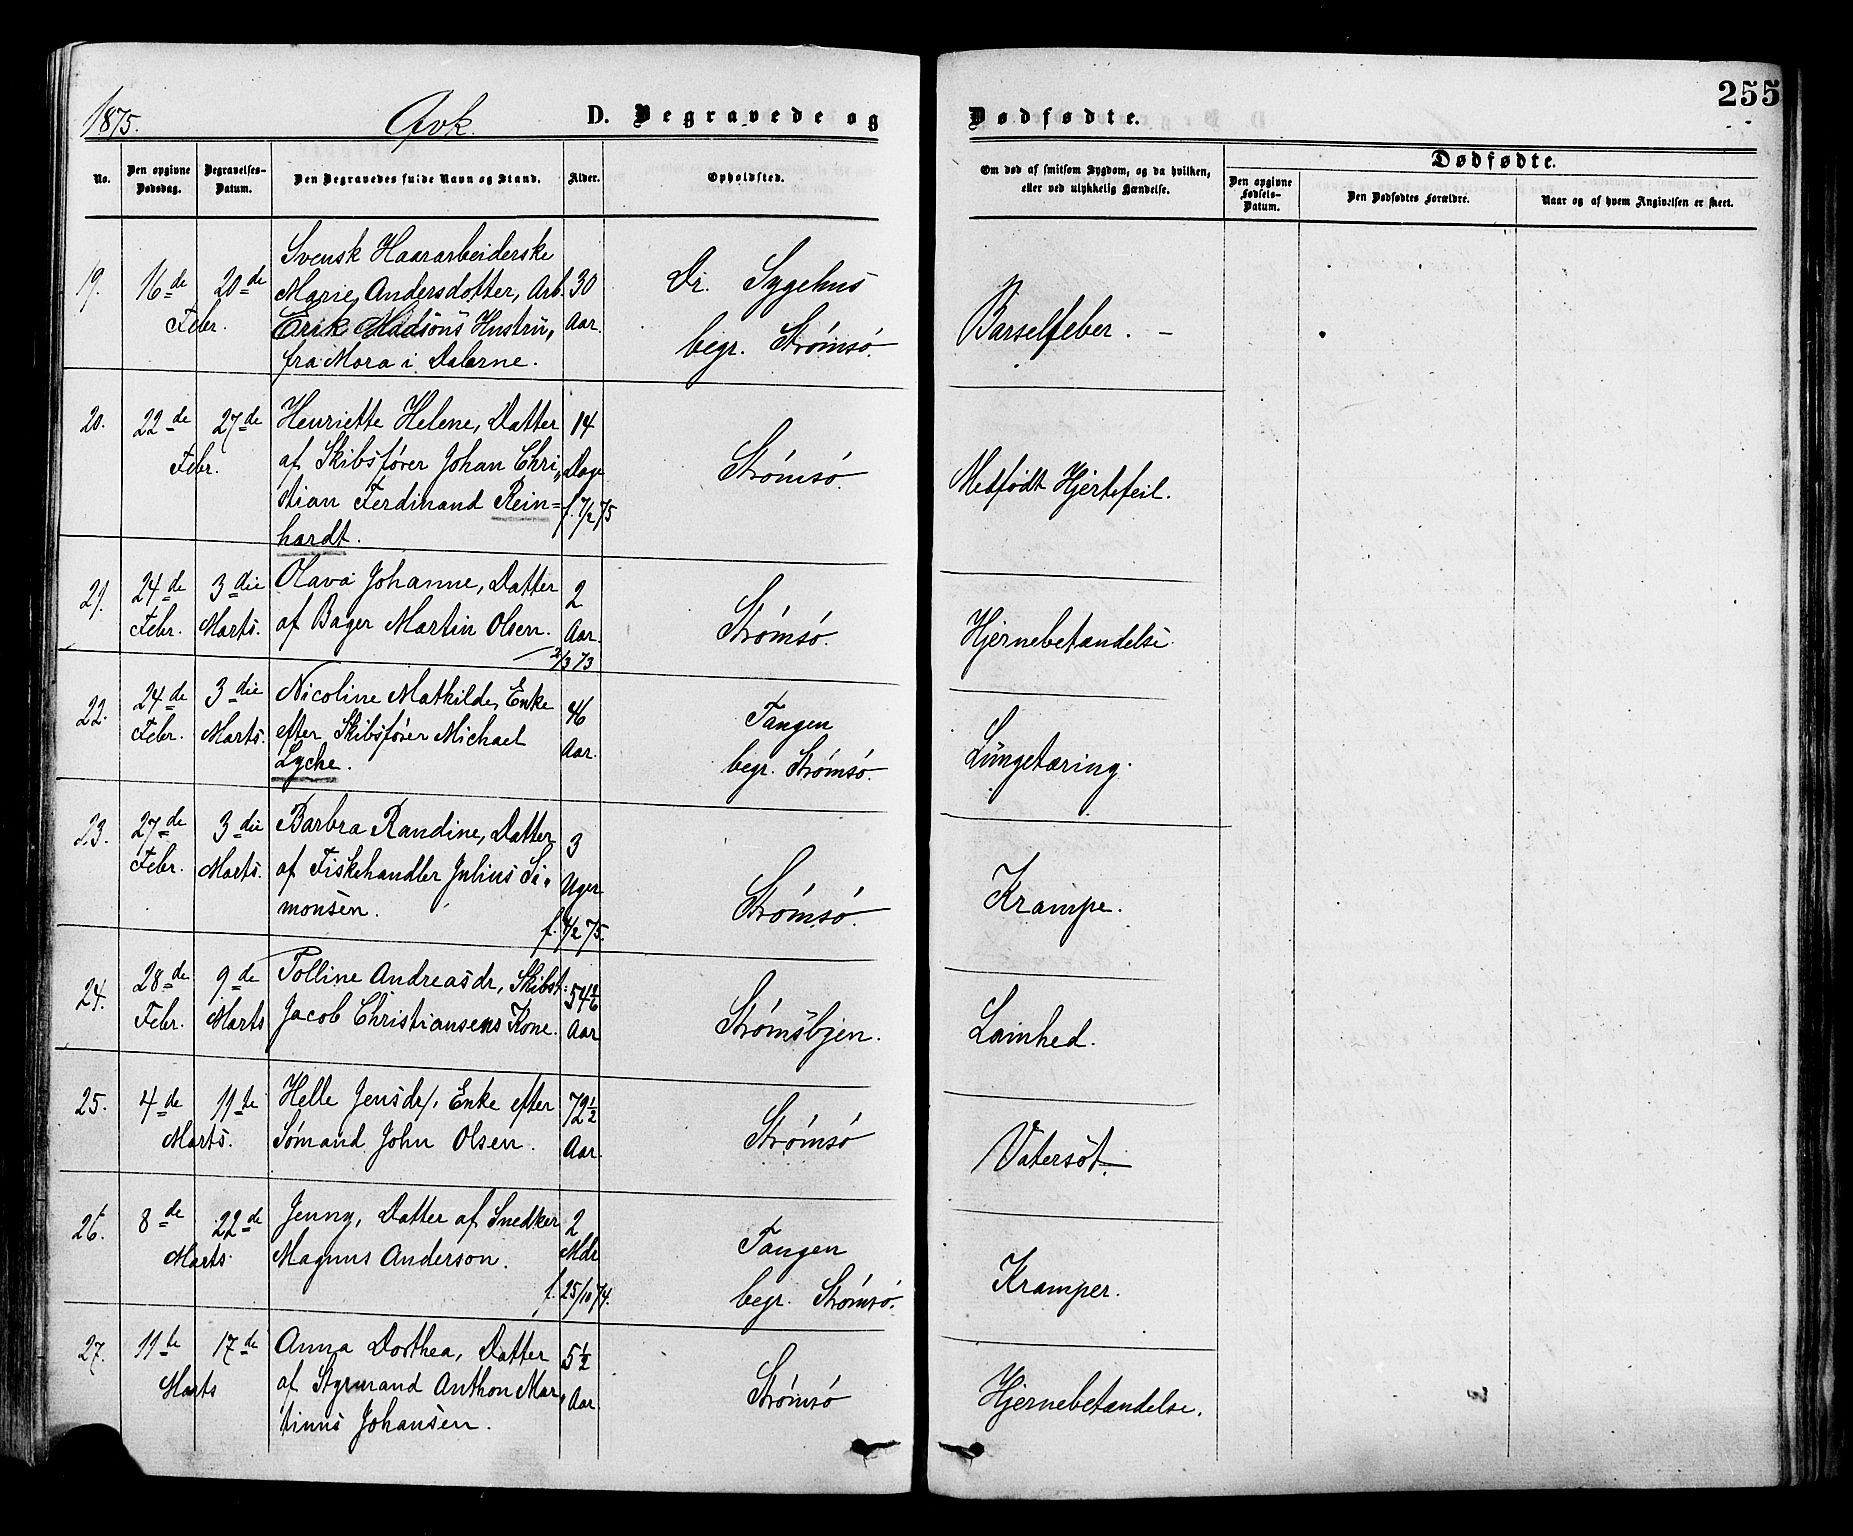 255
1875.
Qvk.
D. Begravede og
Dødfødte.
No.
Den opgivne Dødsdag.
Begravelses-Datum.
Den Begravedes fulde Navn og Stand.
Alder.
Opholdsted.
Om død af smitsom Sygdom, og da hvilken,
eller ved ulykkelig Hændelse.
Dødfødte.
Den opgivne Fødsels-Datum.
Den Dødfødtes Forældre.
Naar og af hvem Angivelsen er skeet.
19. 16de 20de Febr.
Svensk Haararbeiderske
Marie Andersdotter, Arb.
Erik Madsons Hustru,
fra Mora i Dalerne.
30 Aar.
Dr. Sygehus
begr. Strømsø.
Barselfeber. –
20. 22de 27de Febr.
Henriette Helene, Datter
af Skibsfører Johan Chri-
stian Ferdinand Rein=
hardt.
14 Dage
f. 7/2 75
Strømsø.
Medfødt Hjertefeil.
21. 24de Febr. 3die Marts.
Olava Johanne, Datter
af Bager Martin Olsen.
2 Aar.
2/3 73
Strømsø.
Hjernebetændelse.
22. 24de Febr. 3die Marts.
Nicoline Mathilde, Enke
efter Skibsfører Michael
Lyche.
46 Aar.
Tangen
begr. Strømsø.
Lungetæring.
23. 27de Febr. 3die Marts.
Barbra Randine, Datter
af Fiskehandler Julius Si-
monsen.
3 Uger
f. 4/2 75.
Strømsø.
Krampe.
24. 28de Febr. 9de Marts
Tolline Andreasdr, Skibst:
Jacob Christiansens Kone.
54 Aar
Strømsbjen.
Lamhed.
25. 4de 11te Marts.
Helle Jensdr, Enke efter
Sømand John Olsen.
72 1/2 Aar.
Strømsø
Vatersot.
26. 8de 22de Marts.
Jenny, Datter af Snedker
Magnus Anderson.
2 Mdr
f. 25/10 74.
Tangen
begr. Strømsø.
Kramper.
27. 11te 17de Marts
Anna Dorthea, Datter
af Styrmand Anthon Mar-
tinus Johansen.
5 1/2 Aar.
Strømsø
Hjernebetændelse.